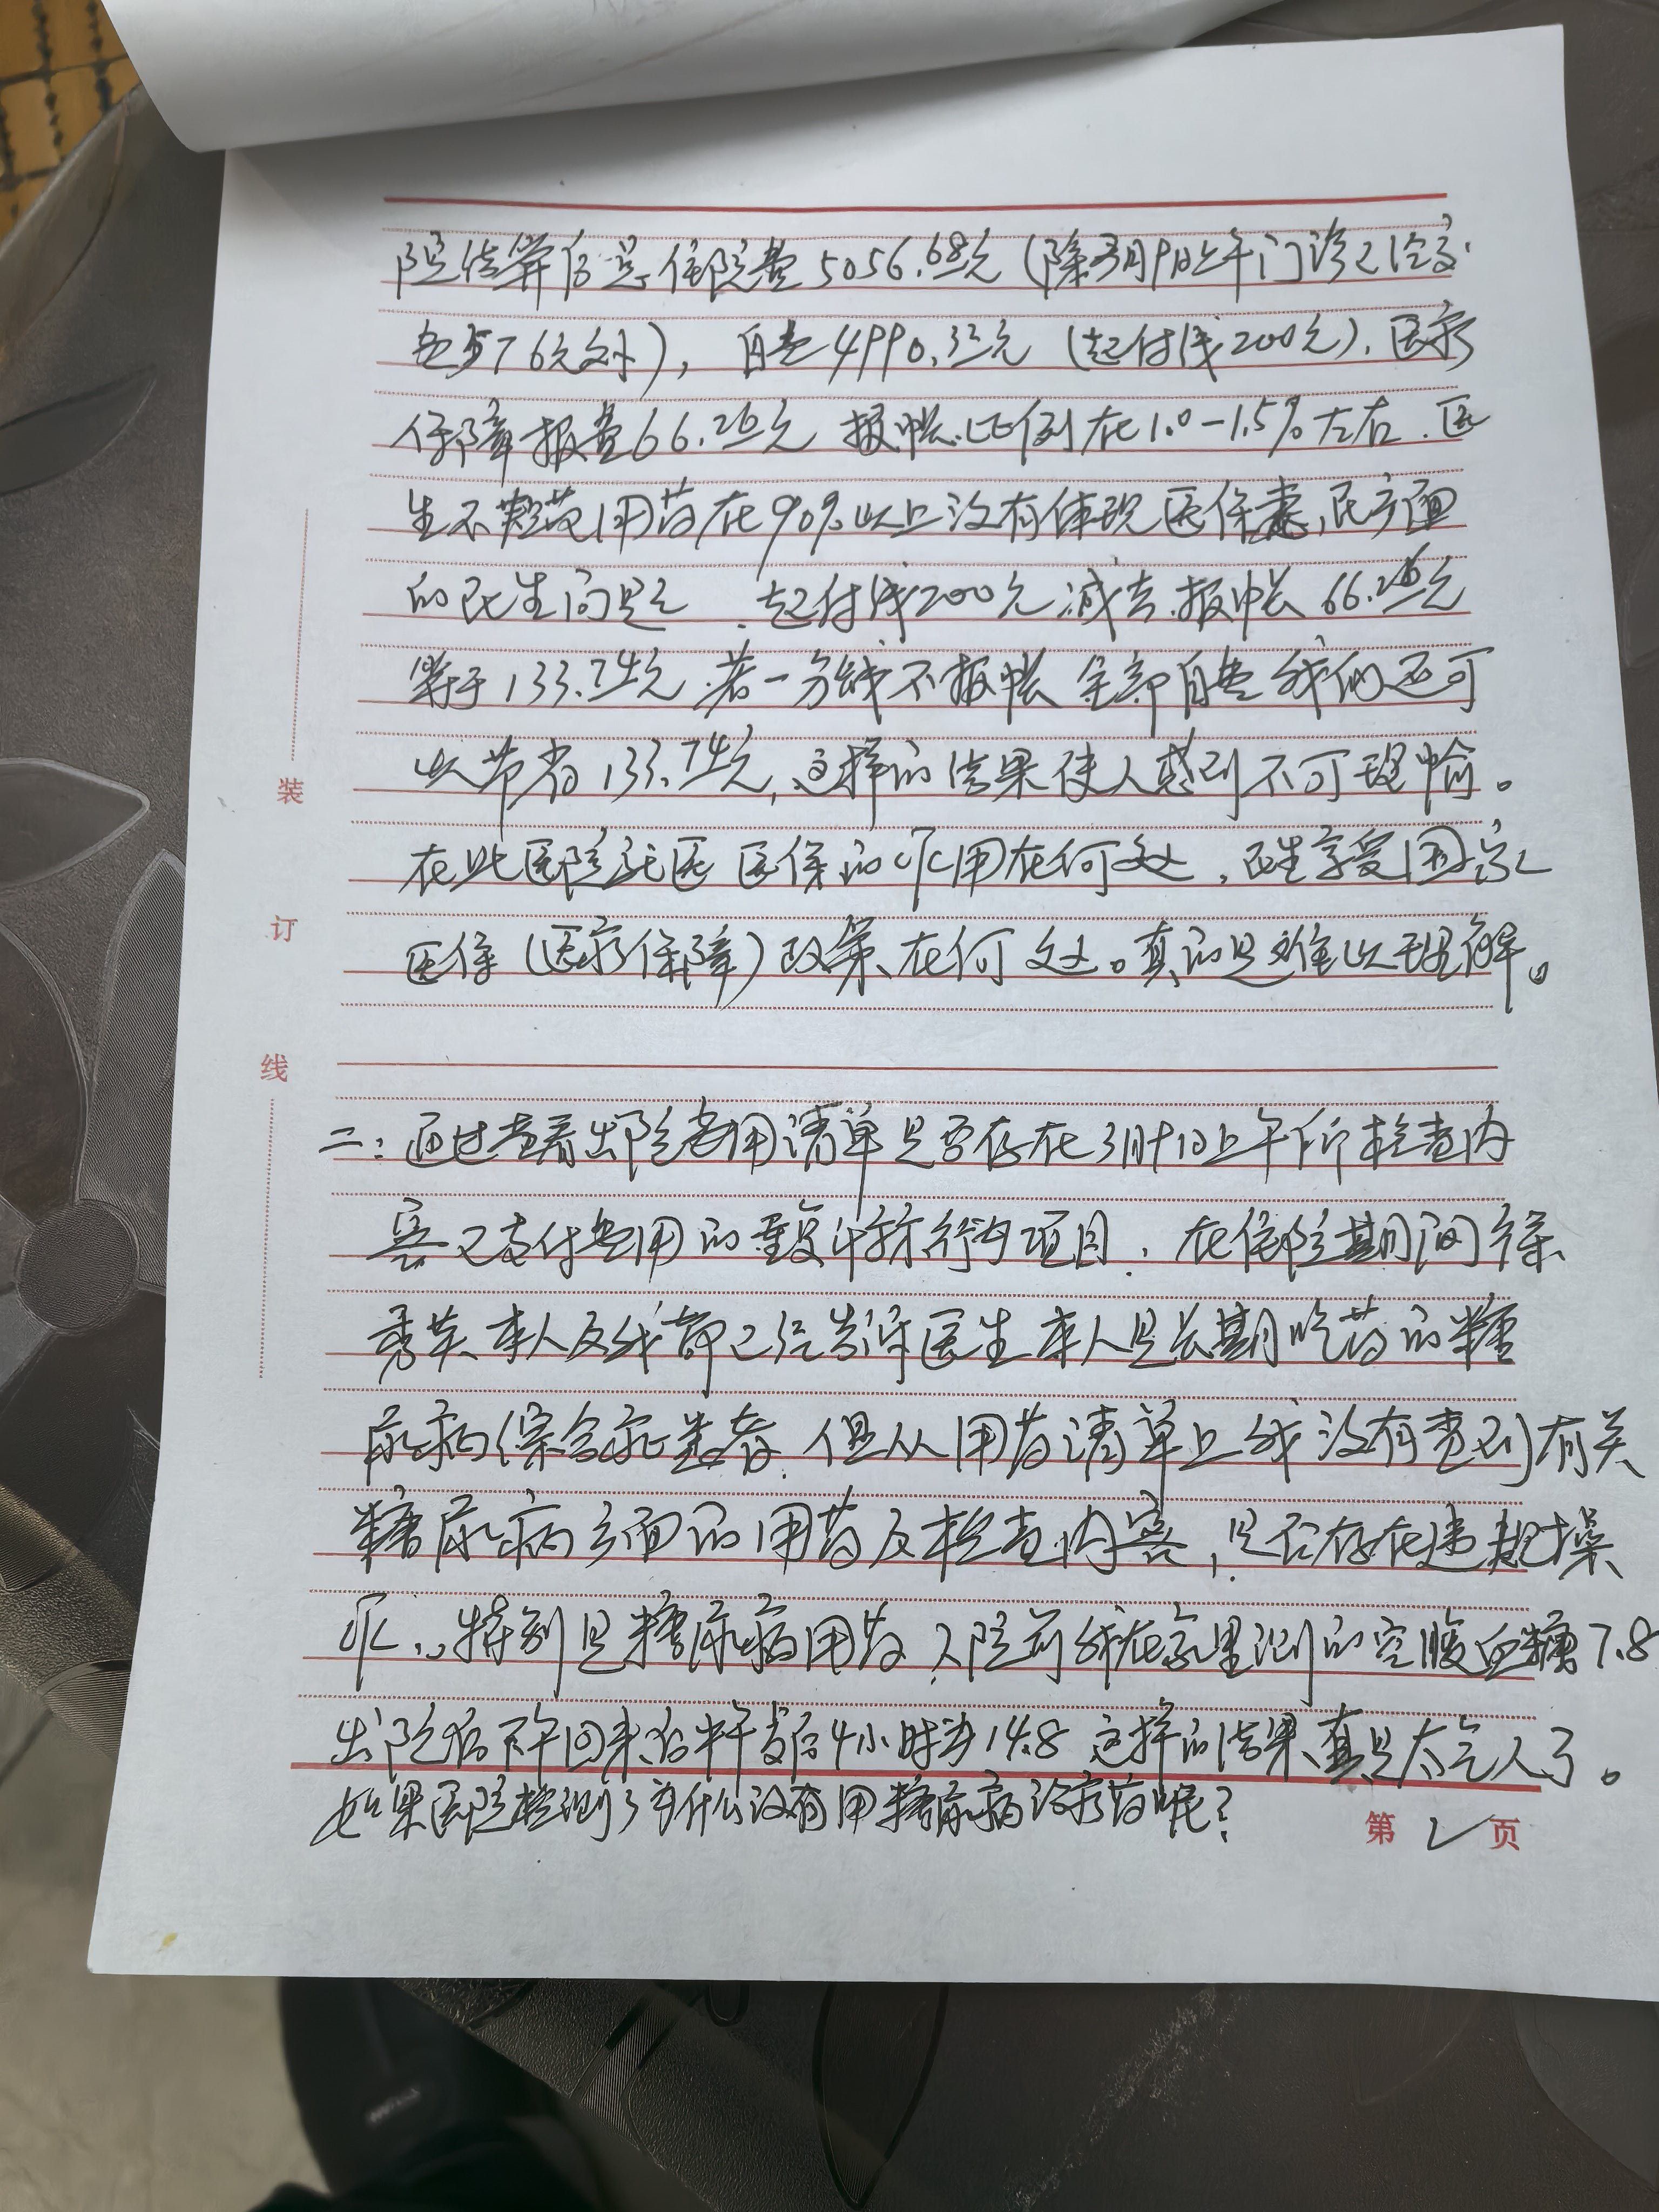 院结算后是住院费5056.68元(除3月9日上午门诊已经交
费576元之外),自费4990.33元(起付线200元).医疗
保障报费66.26元 报帐比例在1.0-1.5%左右.医
生不规范用药在90%以上没有体现医保惠民方面
的民生问题.起付线200元减去报帐66.26元
等于133.74元.若一分钱不报帐 全部自费我们还可
以节省133.74元,这样的结果使人感到不可理喻。
在此医院就医 医保的作用在何处,民生享受国家
医保(医疗保障)政策、在何处。真的是难以理解。
二:通过查看出院费用清单是否存在3月9日上午所检查内
容已支付费用的重复计算行为项目.在住院期间徐
秀英本人及我都已经告诉医生本人是长期吃药的糖
尿病综合症患者.但从用药清单上我没有查到有关
糖尿病方面的用药及检查内容,是否存在违规操
作.特别是糖尿病用药.入院前我在家里测的空腹血糖7.8
出院后下午回来后半餐后4小时为14.8 这样的结果真是太气人了。
如果医院检测了为什么没有用糖尿病诊疗药呢?
装
订
线
第 2 页